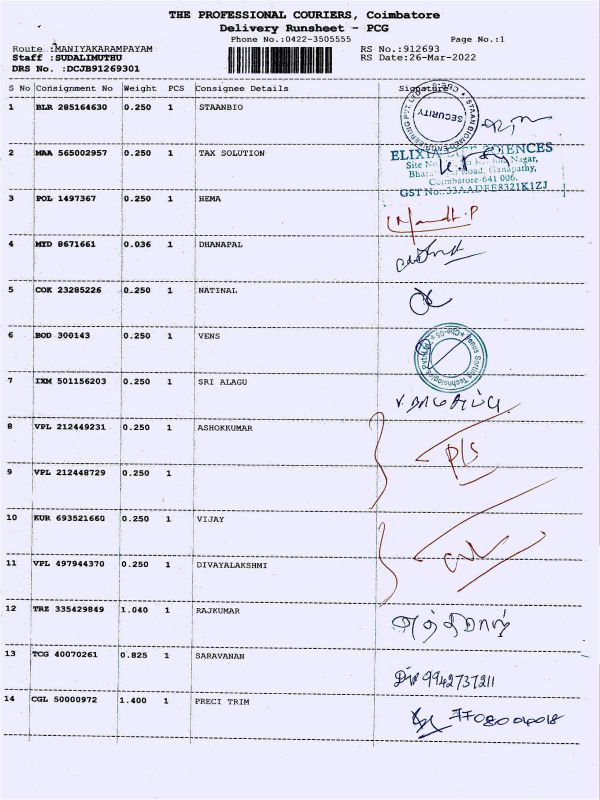 THE PROFESSIONAL COURIERS, Coimbatore
Delivery Runsheet - PCG
Phone No.:0422-3505555 Page No.:1
Route :MANIYAKARAMPAYAM RS No.:912693
Staff :SUDALIMUTHU RS Date:26-Mar-2022
DRS No. :DCJB91269301
S No Consignment No Weight PCS Consignee Details Signature
1 BLR 285164630 0.250 1 STAANBIO
SECURITY
2 MAA 565002957 0.250 1 TAX SOLUTION
ELIXIA SCIENCES
Site No Nagar,
Road, Ganapathy,
Coimbatore-641 006.
GST No.:33AADFE8321K1ZJ
3 POL 1497367 0.250 1 HEMA
4 MYD 8671661 0.036 1 DHANAPAL
5 COK 23285226 0.250 1 NATINAL
6 BOD 300143 0.250 1 VENS
7 IXM 501156203 0.250 1 SRI ALAGU
8 VPL 212449231 0.250 1 ASHOKKUMAR
P/S
9 VPL 212448729 0.250 1
10 KUR 693521660 0.250 1 VIJAY
11 VPL 497944370 0.250 1 DIVAYALAKSHMI
12 TRZ 335429849 1.040 1 RAJKUMAR
13 TCG 40070261 0.825 1 SARAVANAN
9942737211
14 CGL 50000972 1.400 1 PRECI TRIM